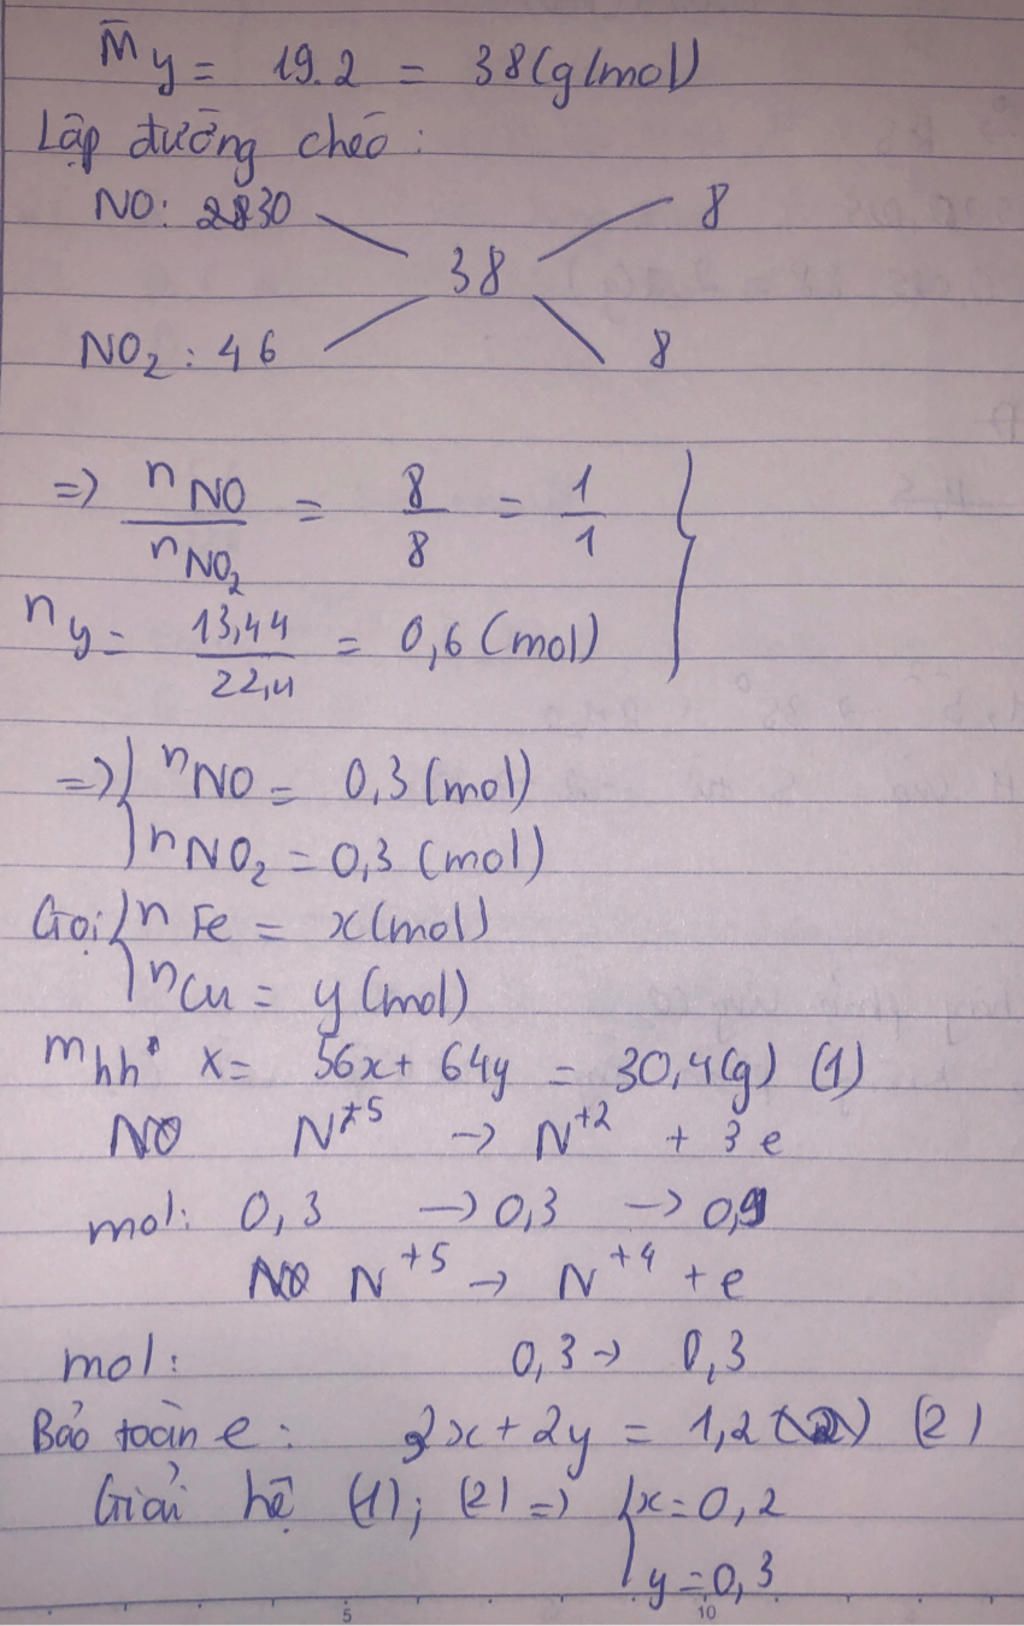 M̄y = 19.2 = 38(g/mol)
Lập đường chéo :
NO: 2830 8
38
NO₂ : 46 8
=> nNO / nNO₂ = 8/8 = 1/1
ny = 13,44/22,4 = 0,6 (mol)
=> nNO = 0,3 (mol)
nNO₂ = 0,3 (mol)
Gọi nFe = x(mol)
nCu = y (mol)
mhh X = 56x + 64y = 30,4(g) (1)
NO N⁺⁵ -> N⁺² + 3e
mol: 0,3 -> 0,3 -> 0,9
N⁺⁵ -> N⁺⁴ + e
mol: 0,3 -> 0,3
Bảo toàn e : 3x + 2y = 1,2 (2)
Giải hệ (1); (2) => x = 0,2
y = 0,3
5 10